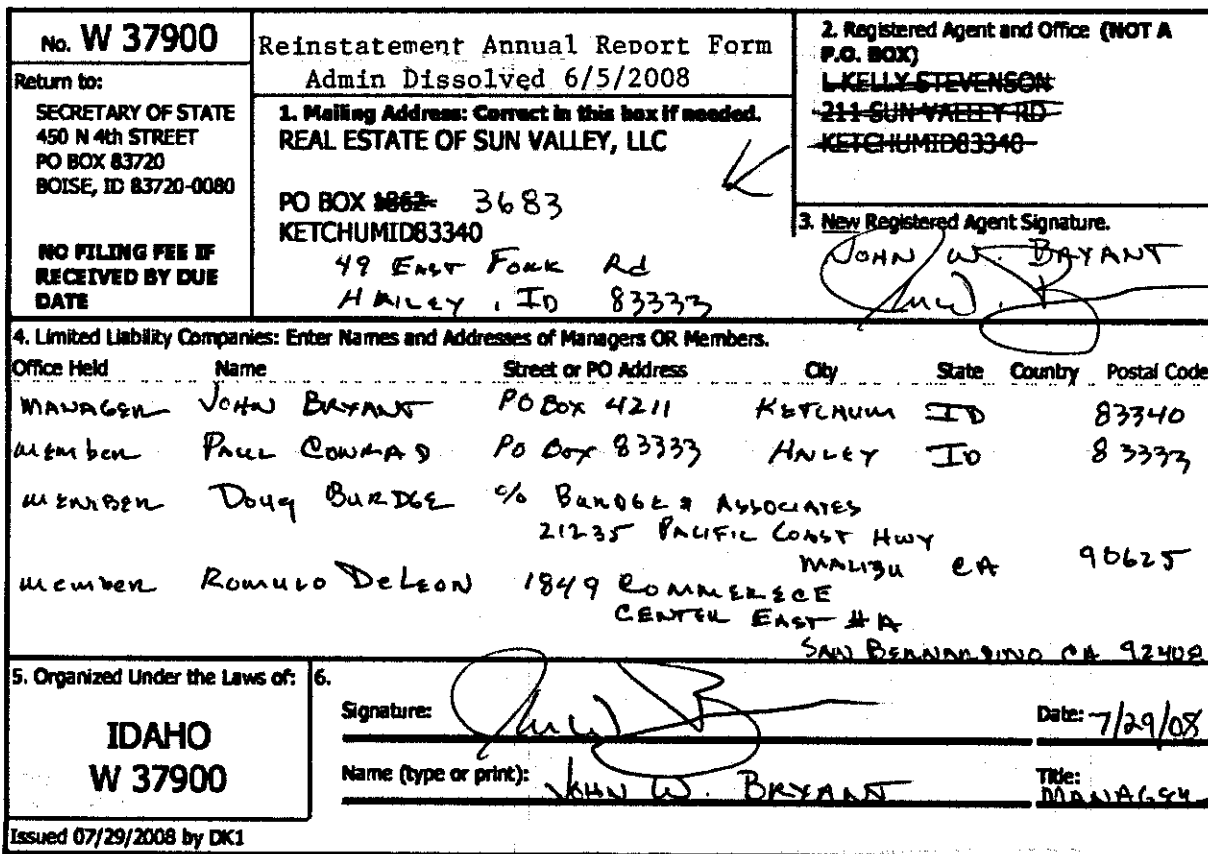 No. W 37900
Return to:
SECRETARY OF STATE
450 N 4th STREET
PO BOX 83720
BOISE, ID 83720-0080
NO FILING FEE IF
RECEIVED BY DUE
DATE
Reinstatement Annual Report Form
Admin Dissolved 6/5/2008
1. Mailing Address: Correct in this box if needed.
REAL ESTATE OF SUN VALLEY, LLC
PO BOX 1862 3683
KETCHUMID83340
49 EAST FORK Rd
HAILEY, ID 83333
2. Registered Agent and Office (NOT A
P.O. BOX)
L KELLY STEVENSON
211 SUN VALLEY RD
KETCHUMID83340
3. New Registered Agent Signature.
JOHN W. BRYANT
4. Limited Liability Companies: Enter Names and Addresses of Managers OR Members.
Office Held Name Street or PO Address City State Country Postal Code
MANAGER JOHN BRYANT PO BOX 4211 KETCHUM ID 83340
member PAUL CONRAD PO Box 83333 HAILEY ID 83333
MEMBER Doug BURDGE c/o BURDGE & ASSOCIATES
21235 PACIFIC COAST HWY
MALIBU CA 90625
member ROMULO DeLEON 1849 COMMERECE
CENTER EAST #A
SAN BERNARDINO CA 92408
5. Organized Under the Laws of:
IDAHO
W 37900
6.
Signature: Date: 7/29/08
Name (type or print): JOHN W. BRYANT Title: MANAGER
Issued 07/29/2008 by DK1